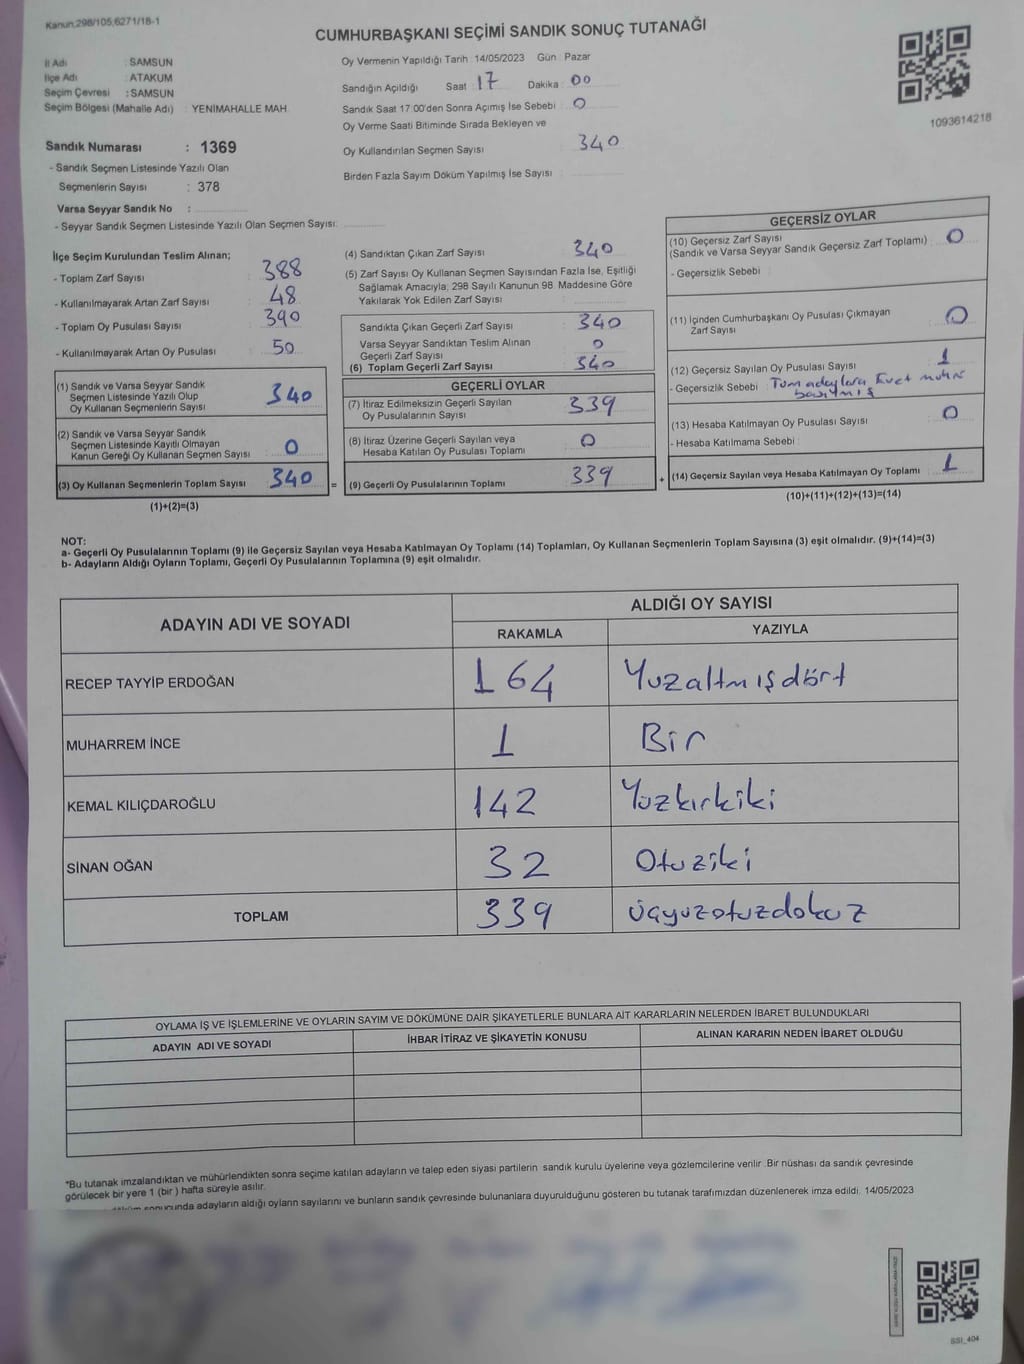 Kanun;298/105,6271/18-1
CUMHURBAŞKANI SEÇİMİ SANDIK SONUÇ TUTANAĞI
İl Adı : SAMSUN
İlçe Adı : ATAKUM
Seçim Çevresi : SAMSUN
Seçim Bölgesi (Mahalle Adı) : YENİMAHALLE MAH.
Sandık Numarası : 1369
- Sandık Seçmen Listesinde Yazılı Olan
Seçmenlerin Sayısı : 378
Varsa Seyyar Sandık No :
- Seyyar Sandık Seçmen Listesinde Yazılı Olan Seçmen Sayısı:
Oy Vermenin Yapıldığı Tarih : 14/05/2023 Gün : Pazar
Sandığın Açıldığı Saat : 17 Dakika : 00
Sandık Saat 17:00'den Sonra Açımış İse Sebebi : 0
Oy Verme Saati Bitiminde Sırada Bekleyen ve
Oy Kullandırılan Seçmen Sayısı : 340
Birden Fazla Sayım Döküm Yapılmış İse Sayısı :
1093614218
İlçe Seçim Kurulundan Teslim Alınan;
- Toplam Zarf Sayısı : 388
- Kullanılmayarak Artan Zarf Sayısı : 48
- Toplam Oy Pusulası Sayısı : 390
- Kullanılmayarak Artan Oy Pusulası : 50
(1) Sandık ve Varsa Seyyar Sandık
Seçmen Listesinde Yazılı Olup
Oy Kullanan Seçmenlerin Sayısı 340
(2) Sandık ve Varsa Seyyar Sandık
Seçmen Listesinde Kayıtlı Olmayan
Kanun Gereği Oy Kullanan Seçmen Sayısı 0
(3) Oy Kullanan Seçmenlerin Toplam Sayısı 340 =
(1)+(2)=(3)
(4) Sandıktan Çıkan Zarf Sayısı 340
(5) Zarf Sayısı Oy Kullanan Seçmen Sayısından Fazla İse, Eşitliği
Sağlamak Amacıyla; 298 Sayılı Kanunun 98. Maddesine Göre
Yakılarak Yok Edilen Zarf Sayısı :
Sandıkta Çıkan Geçerli Zarf Sayısı : 340
Varsa Seyyar Sandıktan Teslim Alınan
Geçerli Zarf Sayısı : 0
(6) Toplam Geçerli Zarf Sayısı : 340
GEÇERLİ OYLAR
(7) İtiraz Edilmeksizin Geçerli Sayılan
Oy Pusulalarının Sayısı : 339
(8) İtiraz Üzerine Geçerli Sayılan veya
Hesaba Katılan Oy Pusulası Toplamı : 0
(9) Geçerli Oy Pusulalarının Toplamı 339 +
GEÇERSİZ OYLAR
(10) Geçersiz Zarf Sayısı
(Sandık ve Varsa Seyyar Sandık Geçersiz Zarf Toplamı) : 0
- Geçersizlik Sebebi :
(11) İçinden Cumhurbaşkanı Oy Pusulası Çıkmayan
Zarf Sayısı : 0
(12) Geçersiz Sayılan Oy Pusulası Sayısı : 1
- Geçersizlik Sebebi : Tüm adaylara Evet mührü
basılmış
(13) Hesaba Katılmayan Oy Pusulası Sayısı : 0
- Hesaba Katılmama Sebebi :
(14) Geçersiz Sayılan veya Hesaba Katılmayan Oy Toplamı : 1
(10)+(11)+(12)+(13)=(14)
NOT:
a- Geçerli Oy Pusulalarının Toplamı (9) ile Geçersiz Sayılan veya Hesaba Katılmayan Oy Toplamı (14) Toplamları, Oy Kullanan Seçmenlerin Toplam Sayısına (3) eşit olmalıdır. (9)+(14)=(3)
b- Adayların Aldığı Oyların Toplamı, Geçerli Oy Pusulalarının Toplamına (9) eşit olmalıdır.
ADAYIN ADI VE SOYADI ALDIĞI OY SAYISI
RAKAMLA YAZIYLA
RECEP TAYYİP ERDOĞAN 164 Yüzaltmışdört
MUHARREM İNCE 1 Bir
KEMAL KILIÇDAROĞLU 142 Yüzkırkiki
SİNAN OĞAN 32 Otuziki
TOPLAM 339 üçyüzotuzdokuz
OYLAMA İŞ VE İŞLEMLERİNE VE OYLARIN SAYIM VE DÖKÜMÜNE DAİR ŞİKAYETLERLE BUNLARA AİT KARARLARIN NELERDEN İBARET BULUNDUKLARI
ADAYIN ADI VE SOYADI İHBAR İTİRAZ VE ŞİKAYETİN KONUSU ALINAN KARARIN NEDEN İBARET OLDUĞU
*Bu tutanak imzalandıktan ve mühürlendikten sonra seçime katılan adayların ve talep eden siyası partilerin sandık kurulu üyelerine veya gözlemcilerine verilir. Bir nüshası da sandık çevresinde
görülecek bir yere 1 (bir ) hafta süreyle asılır.
sonucunda adayların aldığı oyların sayılarını ve bunların sandık çevresinde bulunanlara duyurulduğunu gösteren bu tutanak tarafımızdan düzenlenerek imza edildi. 14/05/2023
SSI_404